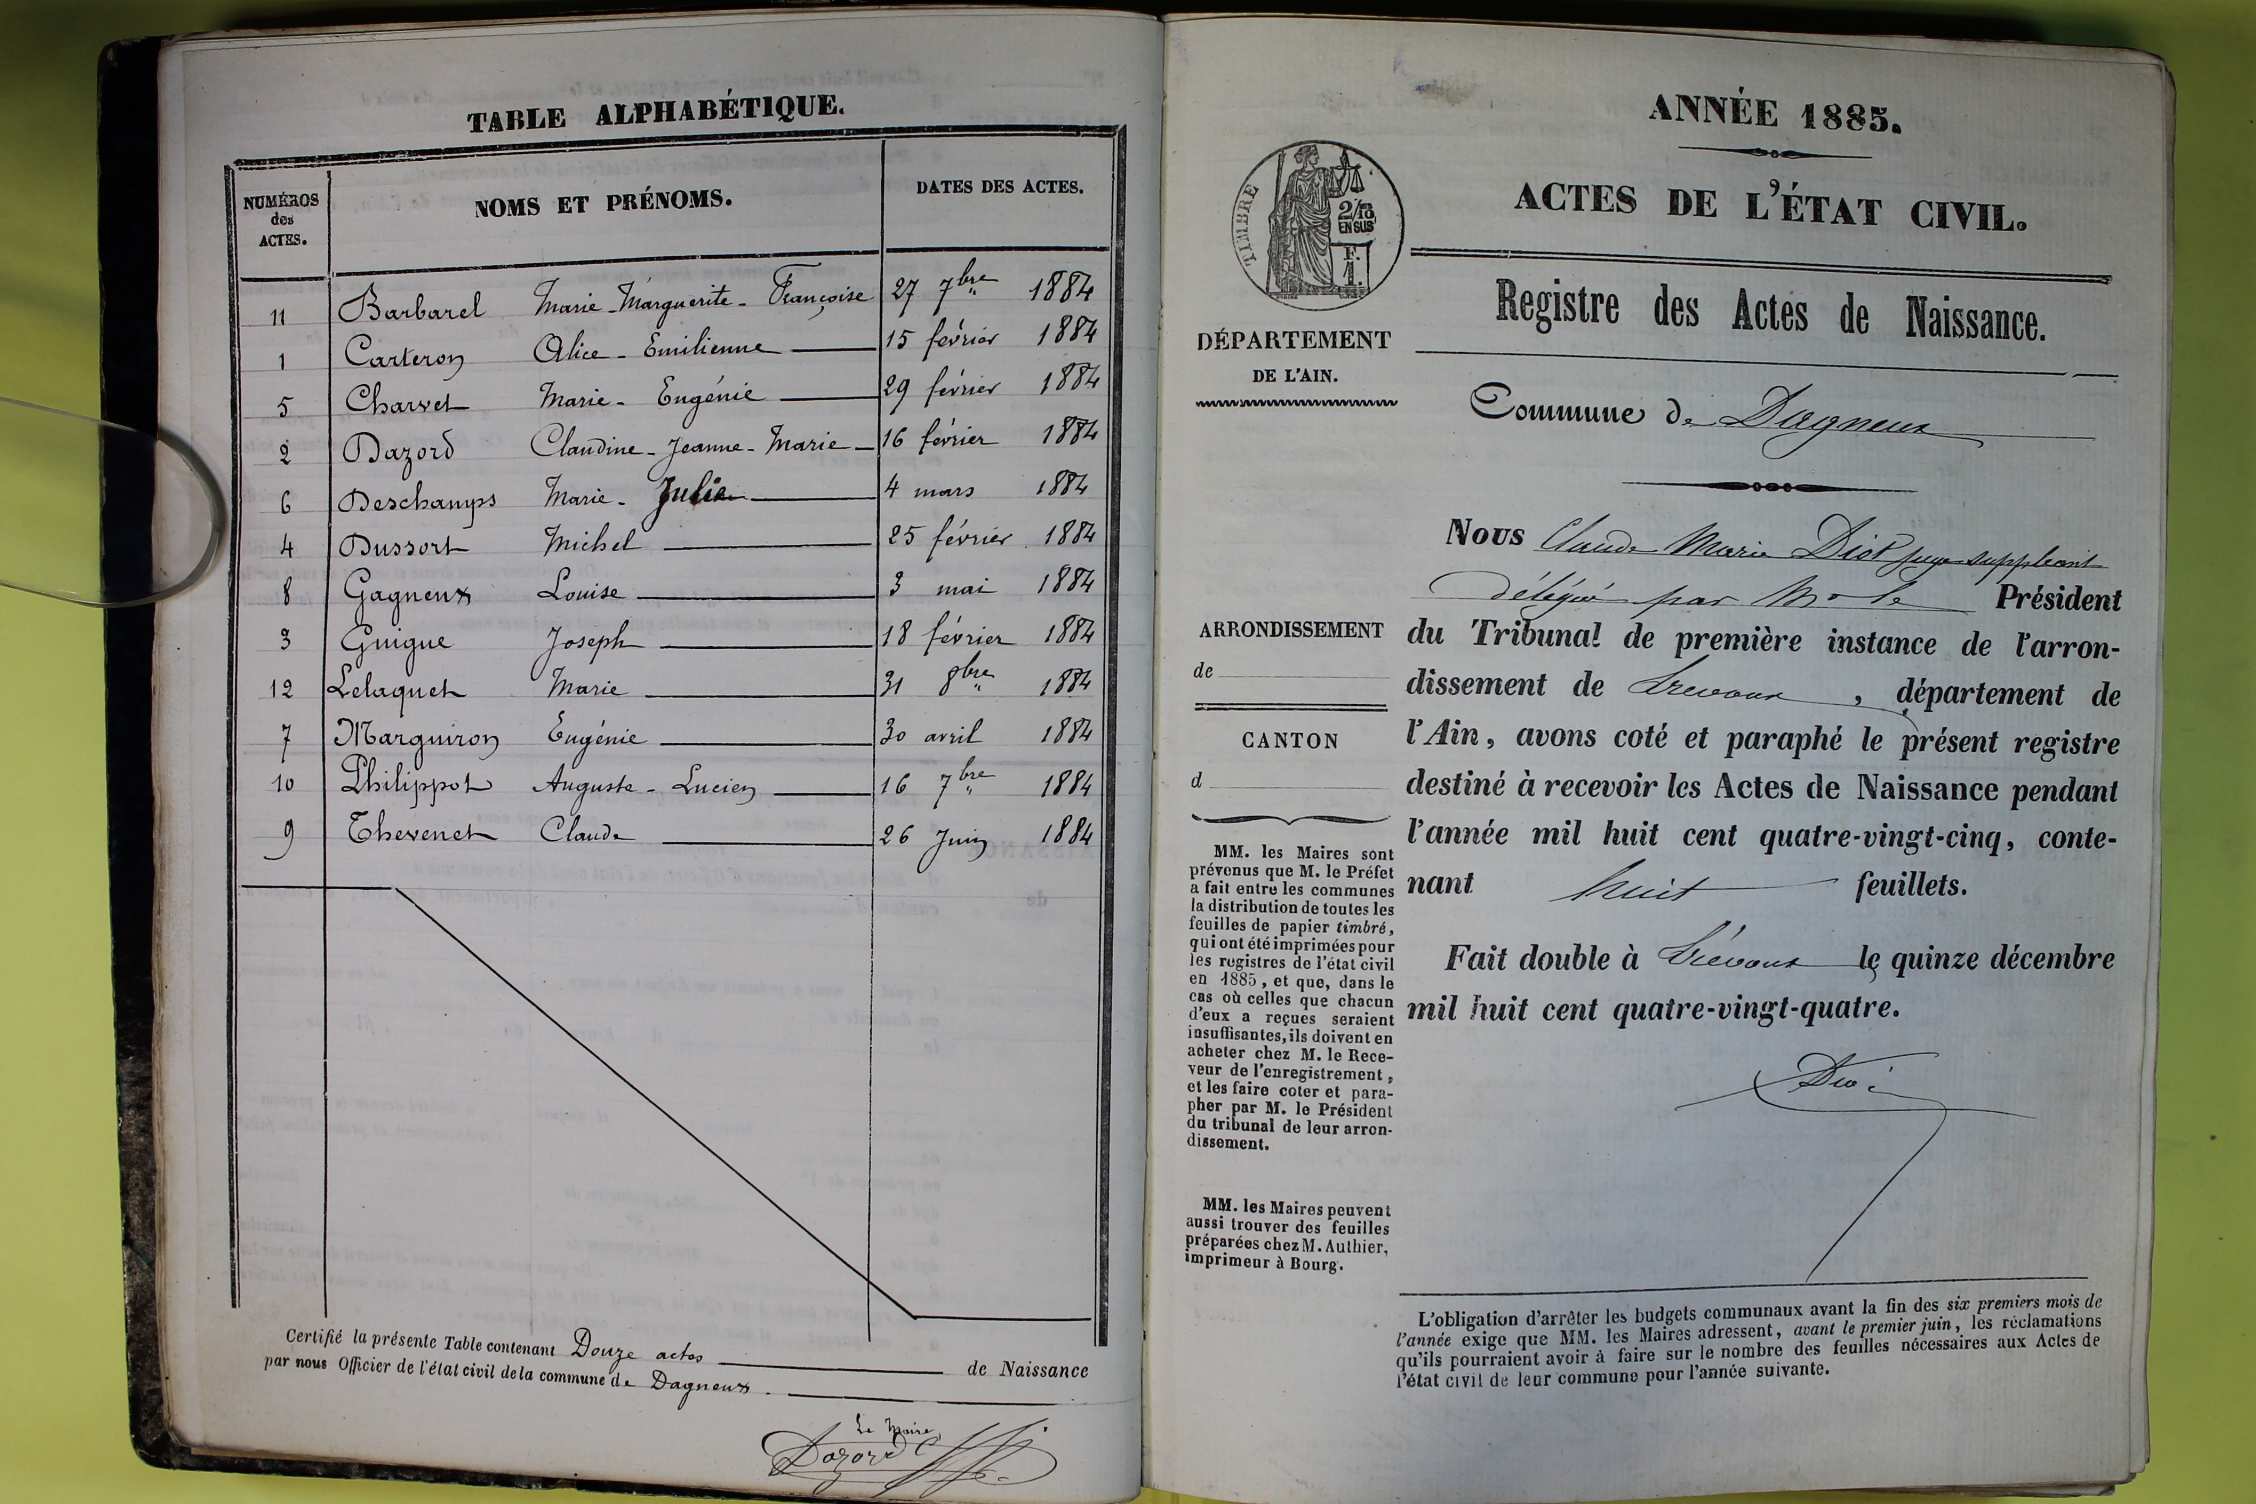 TABLE ALPHABÉTIQUE.
NUMÉROS
des
ACTES.
NOMS ET PRÉNOMS.
DATES DES ACTES.
11 Barbarel Marie-Marguerite-Françoise 27 7bre 1884
1 Carteron Alice-Emilienne 15 février 1884
5 Charvet Marie-Eugénie 29 février 1884
2 Dazord Claudine-Jeanne-Marie 16 février 1884
6 Deschamps Marie-Julie 4 mars 1884
4 Dussort Michel 25 février 1884
8 Gagneux Louise 3 mai 1884
3 Guigue Joseph 18 février 1884
12 Lelaquet Marie 31 8bre 1884
7 Marguiron Eugénie 30 avril 1884
10 Philippot Auguste-Lucien 16 7bre 1884
9 Thevenet Claude 26 Juin 1884
Certifié la présente Table contenant Douze actes de Naissance
par nous Officier de l'état civil de la commune de Dagneux.
Le Maire
Dazord C
ANNÉE 1885.
ACTES DE L'ÉTAT CIVIL.
TIMBRE
2/10
EN SUS
F.
1.
DÉPARTEMENT
DE L'AIN.
Registre des Actes de Naissance.
Commune de Dagneux
Nous Claude Marie Diot juge suppléant
délégué par Mr le Président
du Tribunal de première instance de l'arron-
dissement de Trévoux, département de
l'Ain, avons coté et paraphé le présent registre
destiné à recevoir les Actes de Naissance pendant
l'année mil huit cent quatre-vingt-cinq, conte-
nant huit feuillets.
Fait double à Trévoux le quinze décembre
mil huit cent quatre-vingt-quatre.
ARRONDISSEMENT
de
CANTON
d
MM. les Maires sont
prévenus que M. le Préfet
a fait entre les communes
la distribution de toutes les
feuilles de papier timbré,
qui ont été imprimées pour
les registres de l'état civil
en 1885, et que, dans le
cas où celles que chacun
d'eux a reçues seraient
insuffisantes, ils doivent en
acheter chez M. le Rece-
veur de l'enregistrement,
et les faire coter et para-
pher par M. le Président
du tribunal de leur arron-
dissement.
MM. les Maires peuvent
aussi trouver des feuilles
préparées chez M. Authier,
imprimeur à Bourg.
L'obligation d'arrêter les budgets communaux avant la fin des six premiers mois de
l'année exige que MM. les Maires adressent, avant le premier juin, les réclamations
qu'ils pourraient avoir à faire sur le nombre des feuilles nécessaires aux Actes de
l'état civil de leur commune pour l'année suivante.